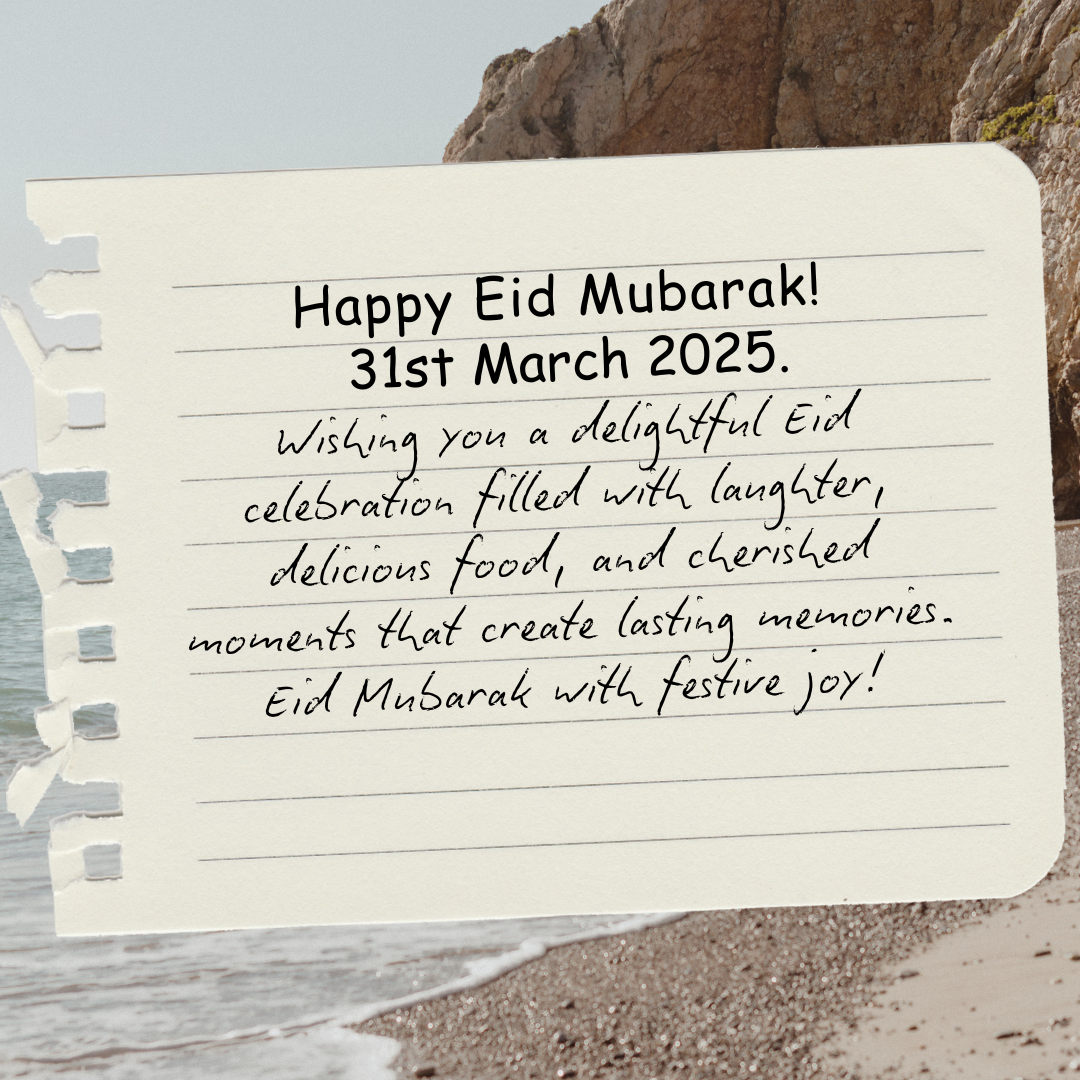 Happy Eid Mubarak!
31st March 2025.
Wishing you a delightful Eid
celebration filled with laughter,
delicious food, and cherished
moments that create lasting memories.
Eid Mubarak with festive joy!